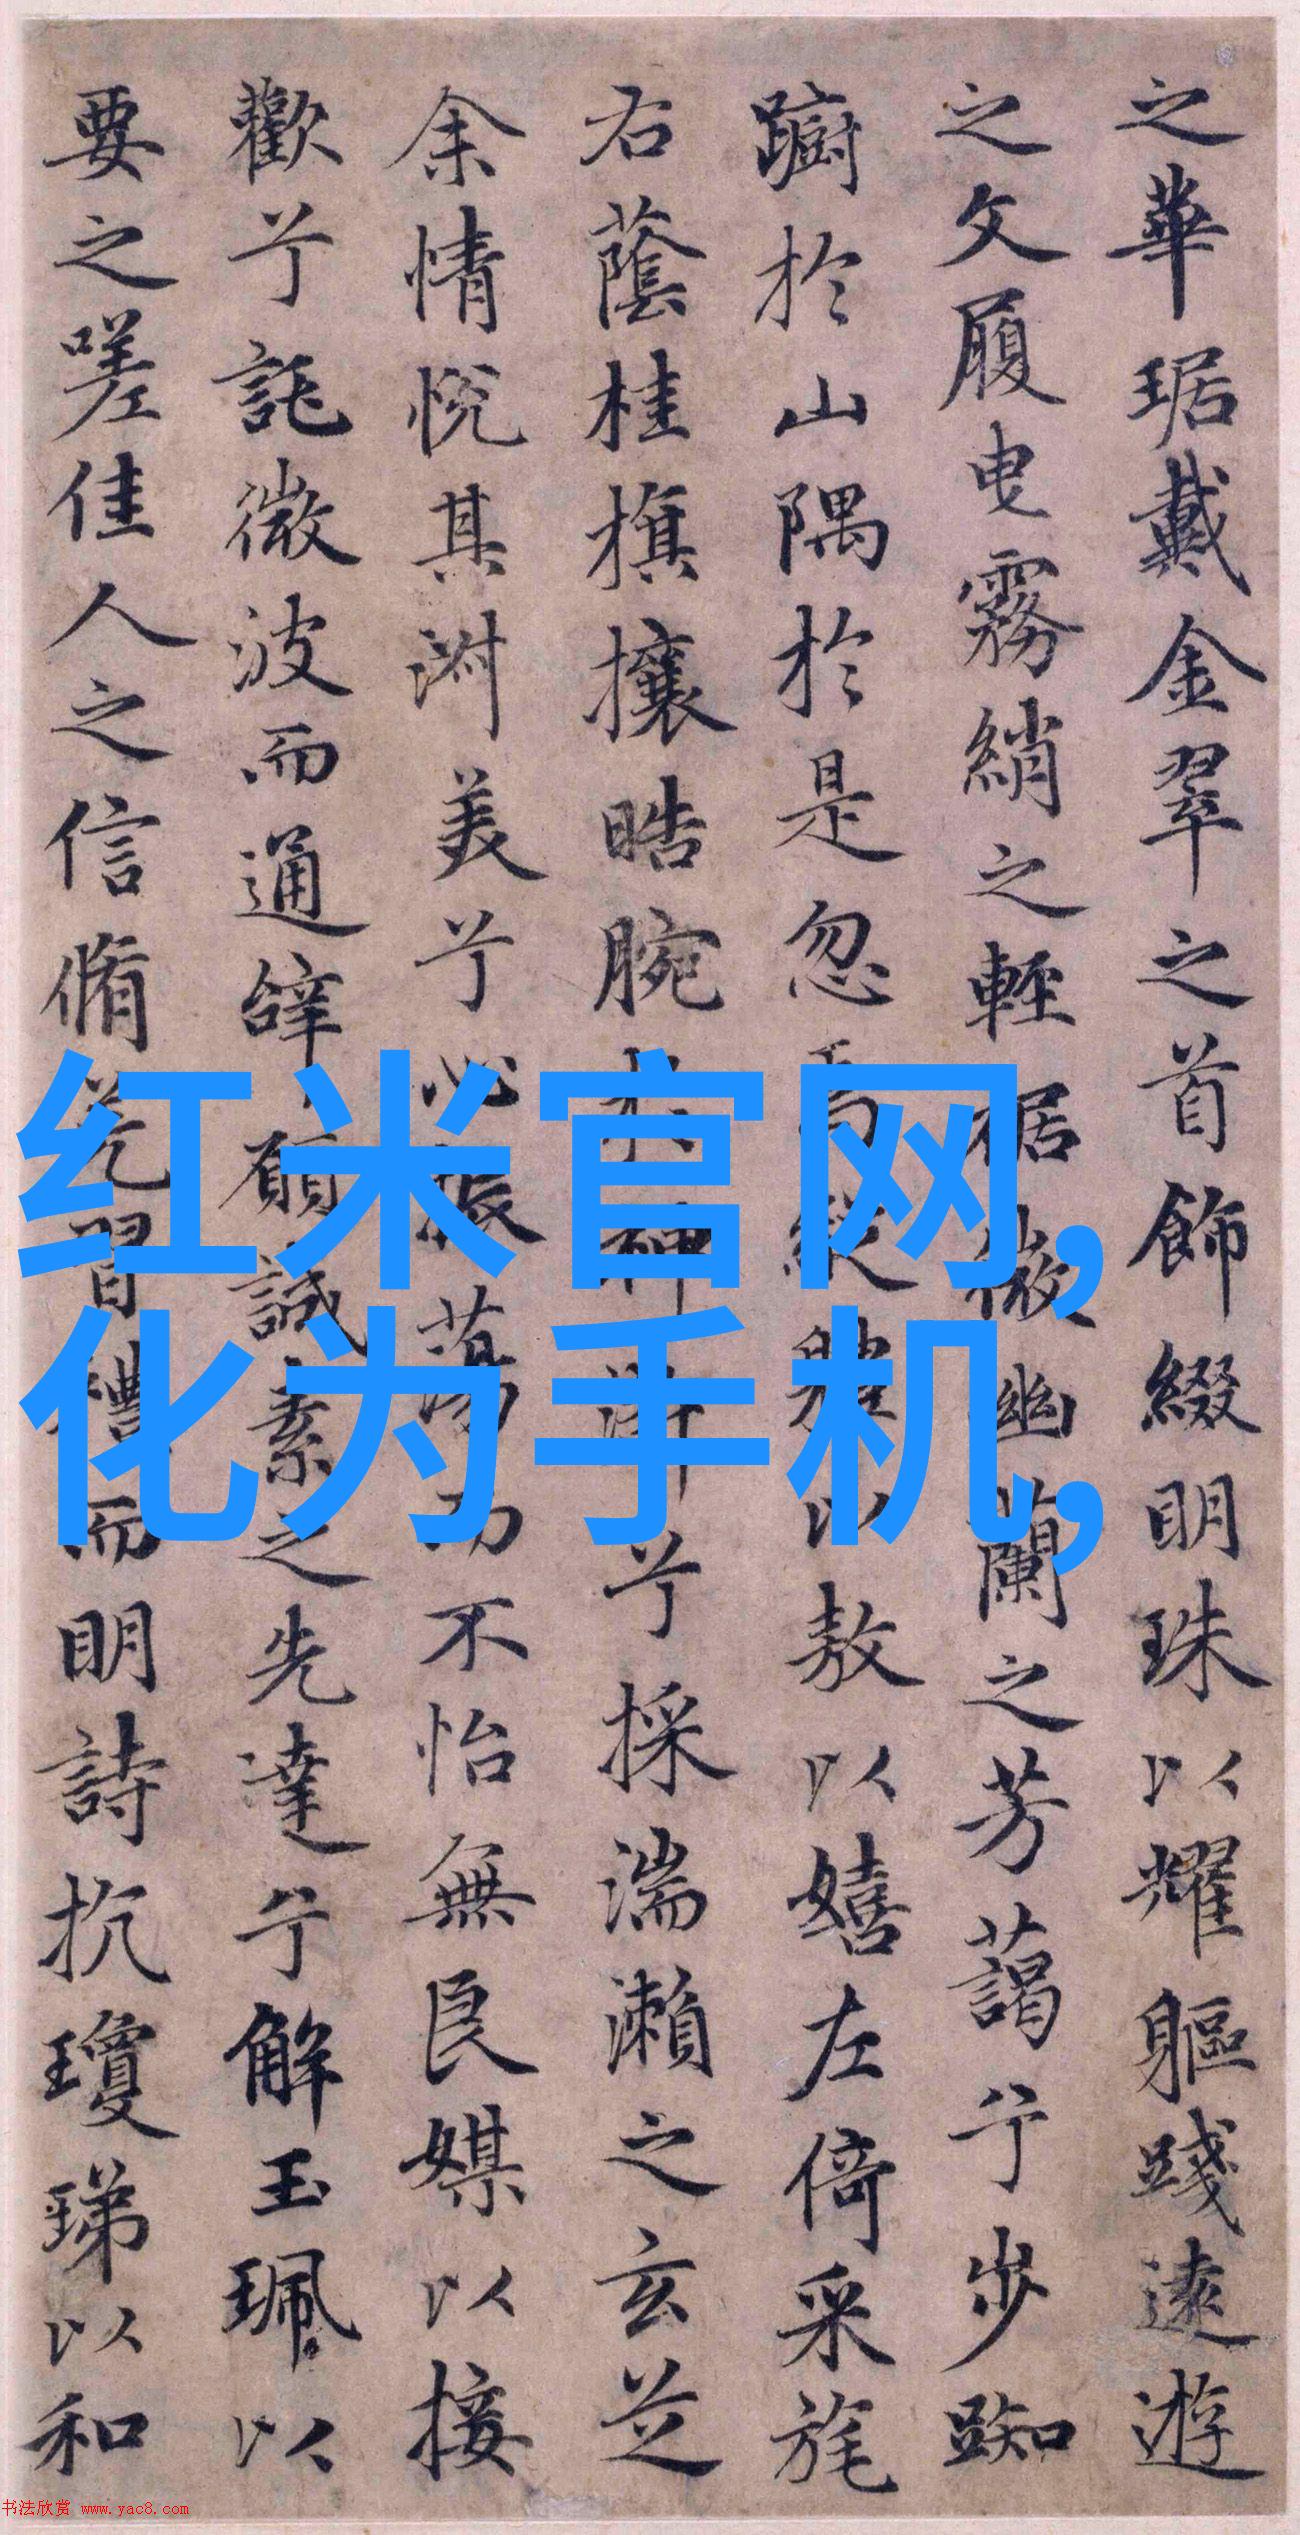 之華琚戴金翠之首飾綴明珠以耀軀踐遠遊
之文履曳霧綃之輕裾微幽蘭之芳藹兮步踟
躕於山隅於是忽焉縱體以敖以嬉左倚采旄
右蔭桂旗攘晧腕於神滸兮採湍瀨之玄芝
余情悅其淑美兮心振蕩而不怡無良媒以接
歡兮託微波而通辭願誠素之先達兮解玉珮以
要之嗟佳人之信脩羌習禮而明詩抗瓊珶以和
红米官网,
化为手机,
书法欣赏 www.yac8.com